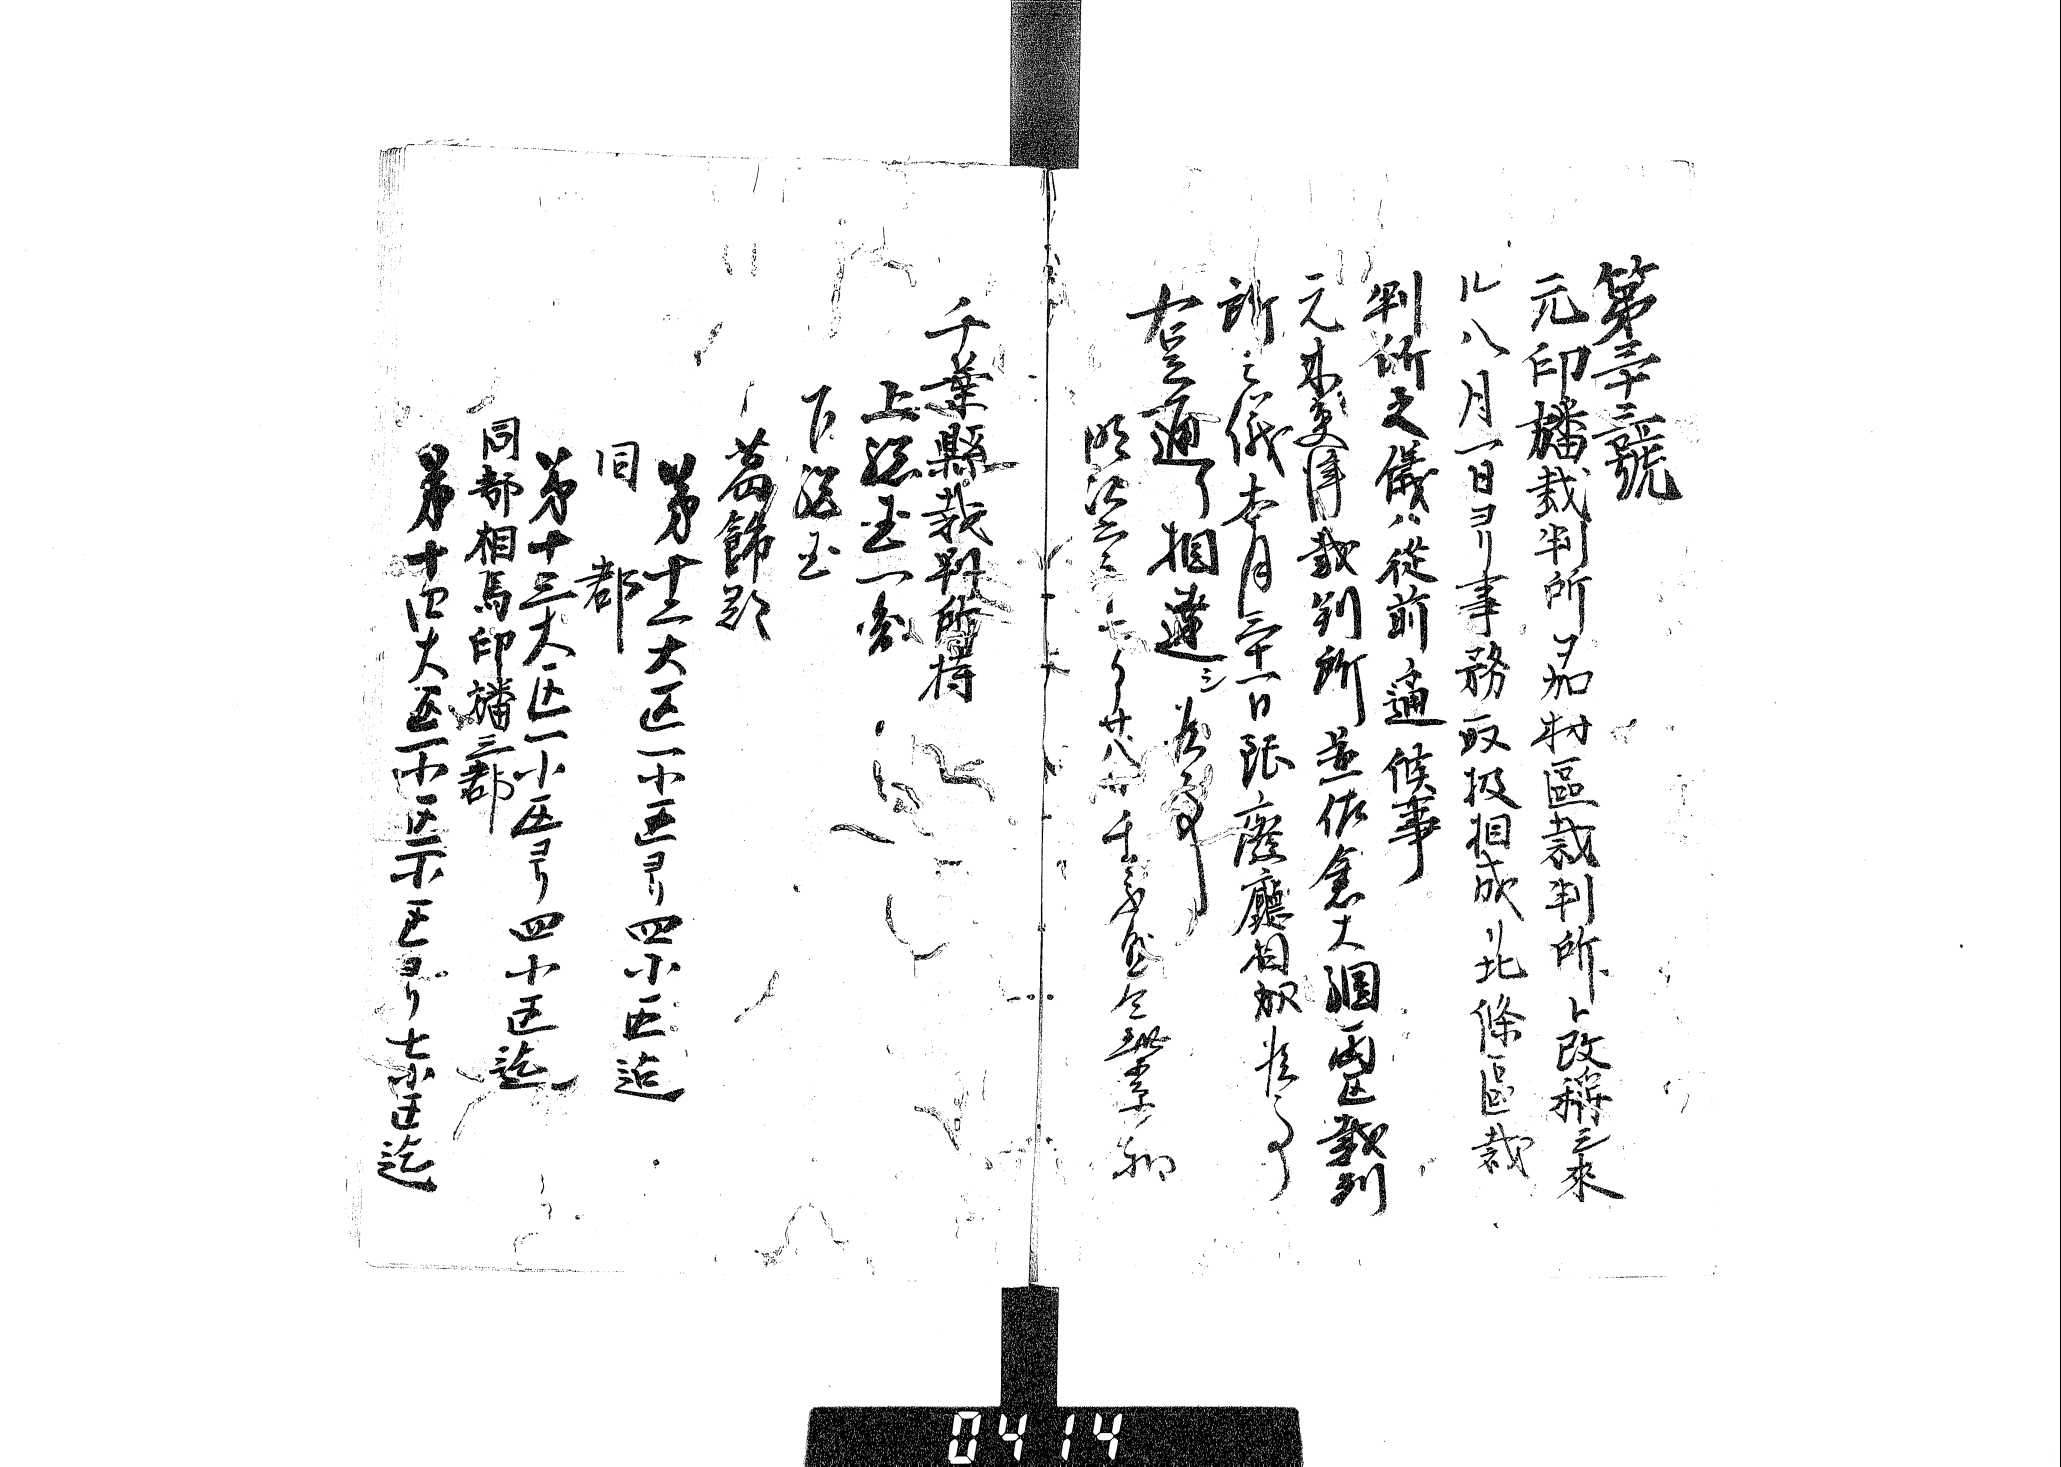 第三十三號
元印旛裁判所ヲ加村區裁判所ト改稱シ來
ル八月一日ヨリ事務取扱相成リ北條區裁
判所之儀ハ從前通候事
元木更津裁判所並佐倉大堀両区裁判
所之儀本月三十一日限廢廳相成候事
右壹通了相達シ候事
明治六年七月廿八日 千葉縣令柴原和
千葉縣裁判所持
上總国一圓
下總国
葛飾郡
第十二大区一小区ヨリ四小区迄
同郡
第十三大区一小区ヨリ四小区迄
同郡相馬印旛三郡
第十四大区一小区ヨリ七小区迄
0414